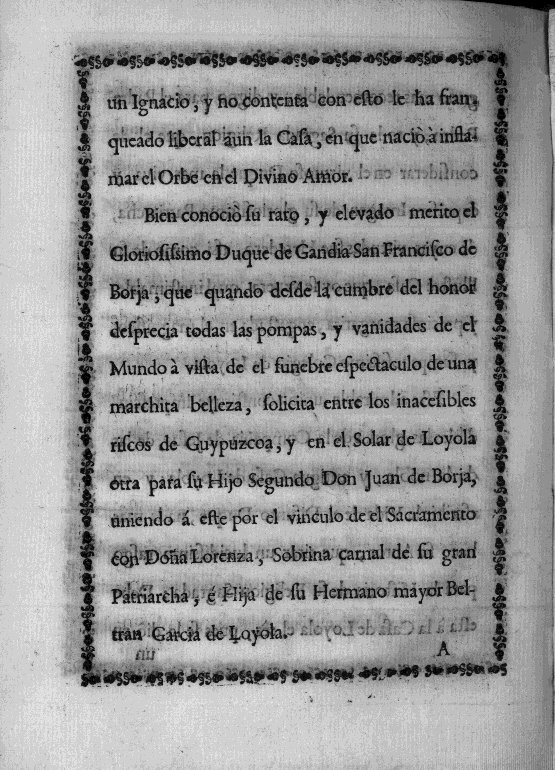 un Ignacio, y no contenta con eſto le ha fran-
queado liberal aun la Caſa, en que naciò à infla-
mar el Orbe en el Divino Amor.
Bien conociò ſu raro, y elevado merito el
Glorioſiſſimo Duque de Gandia San Franciſco de
Borja, que quando deſde la cumbre del honor
deſprecia todas las pompas, y vanidades de el
Mundo à viſta de el funebre eſpectaculo de una
marchita belleza, ſolicita entre los inaceſibles
riſcos de Guypuzcoa, y en el Solar de Loyola
otra para ſu Hijo Segundo Don Juan de Borja,
uniendo á eſte por el vinculo de el Sacramento
con Doña Lorenza, Sobrina carnal de ſu gran
Patriarcha, é Hija de ſu Hermano mayor Bel-
tran Garcia de Loyola.
A